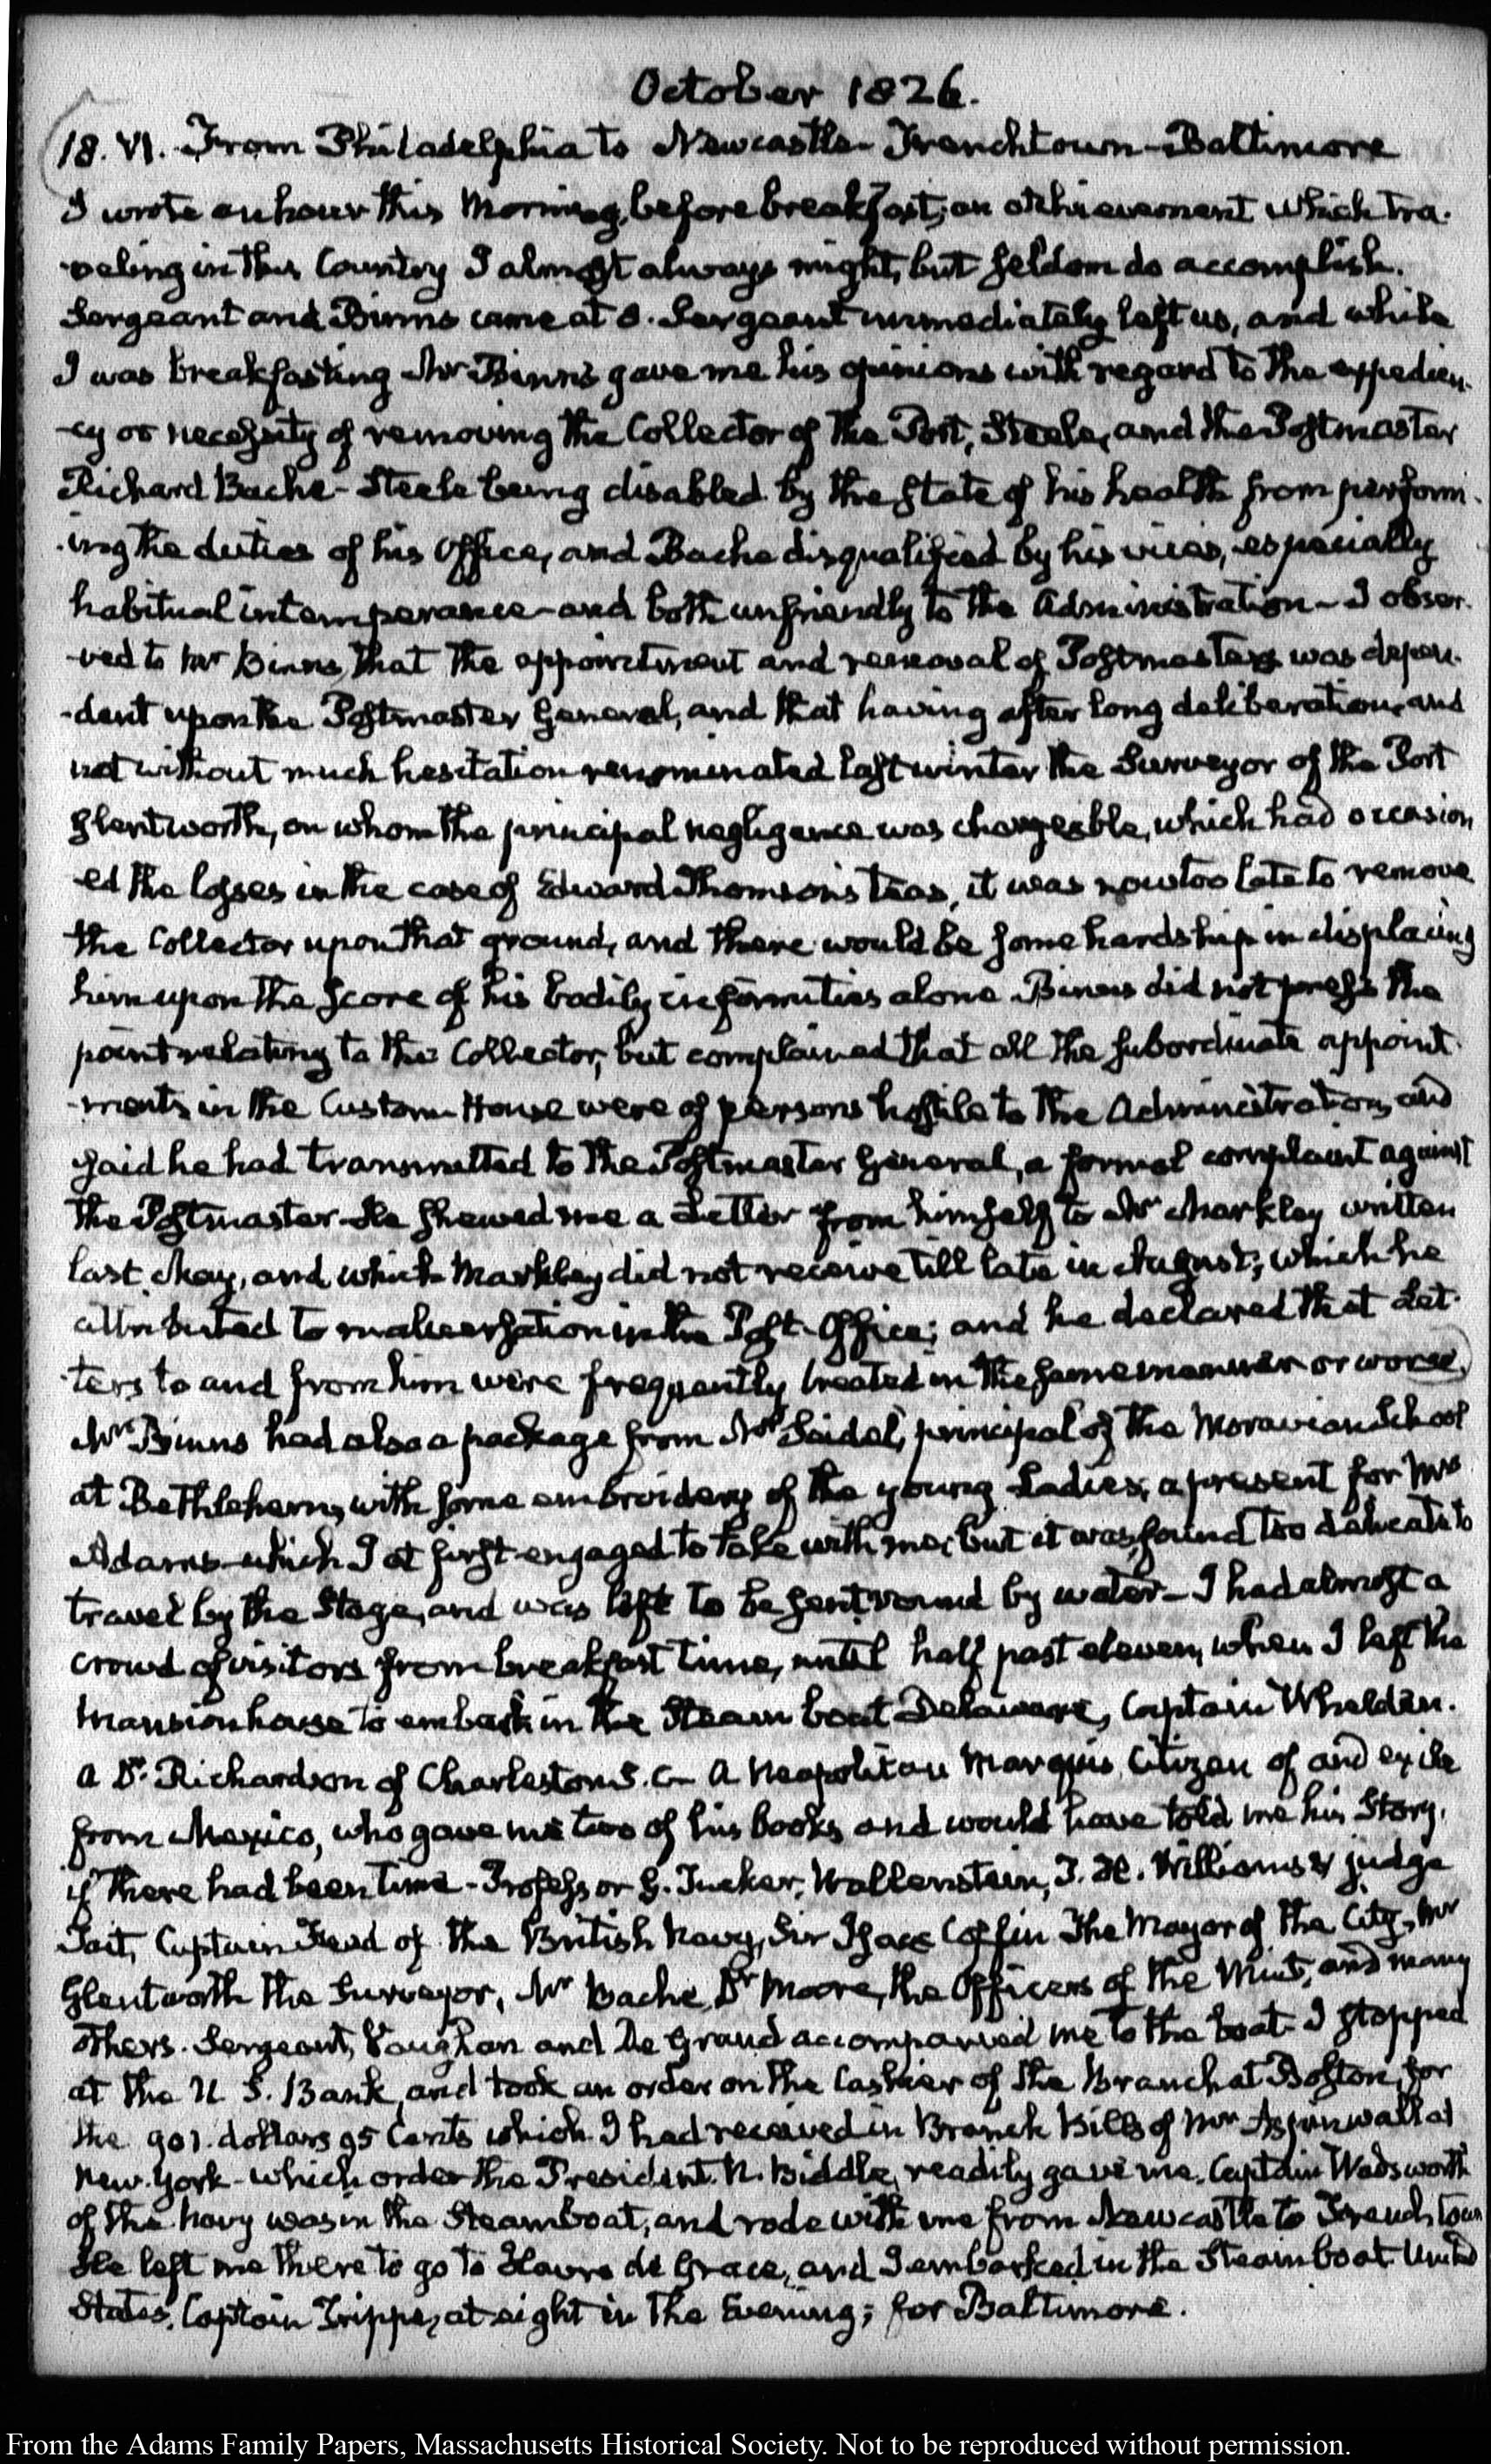 October 1826.
18. VI. From Philadelphia to Newcastle - Frenchtown - Baltimore
I wrote an hour this Morning, before breakfast; an atchievement which tra-
-veling in this Country I almost always might, but seldom do accomplish.
Sergeant and Binns came at 8. Sergeant immediately left us, and while
I was breakfasting Mr Binns gave me his opinions with regard to the expedien-
-cy or necessity of removing the Collector of the Port, Steele, and the Postmaster
Richard Bache - Steele being disabled by the state of his health from perform-
-ing the duties of his Office, and Bache disqualified by his vices, especially
habitual intemperance - and both unfriendly to the Administration - I obser-
-ved to Mr Binns, that the appointment and removal of Postmasters was depen-
-dent upon the Postmaster General, and that having after long deliberation, and
not without much hesitation renominated last winter the Surveyor of the Port
Glentworth, on whom the principal negligence was chargeable, which had occasion
-ed the losses in the case of Edward Thomson's teas, it was now too late to remove
the Collector upon that ground, and there would be some hardship in displacing
him upon the score of his bodily infirmities alone. Binns did not press the
point relating to the Collector, but complained that all the subordinate appoint-
-ments in the Custom-House were of persons hostile to the Administration, and
said he had transmitted to the Postmaster General, a formal complaint against
the Postmaster. He shewed me a Letter from himself to Mr Markley written
last May, and which Markley did not receive till late in August; which he
attributed to malversation in the Post-Office; and he declared that Let-
-ters to and from him were frequently treated in the same manner or worse.
Mr Binns had also a package from Mr Seidel, principal of the Moravian School
at Bethlehem, with some embroidery of the young Ladies; a present for Mrs
Adams - which I at first engaged to take with me; but it was found too delicate to
travel by the Stage, and was left to be sent round by water - I had almost a
crowd of visitors from breakfast time, until half past eleven, when I left the
Mansion house to embark in the Steam boat Delaware, Captain Whelden.
A Dr Richardson of Charleston S.C. - A Neapolitan Marquis, Citizen of and exile
from Mexico, who gave me two of his books and would have told me his Story,
if there had been time - Professor G. Tucker, Wallenstein, T. H. Williams, judge
Tait, Captain Head of the British Navy, Sir Isaac Coffin The Mayor of the City, Mr
Glentworth the Surveyor, Mr Bache, Dr Moore, the Officers of the Mint, and many
others. Sergeant, Vaughan and De Grand accompanied me to the boat - I stopped
at the U. S. Bank, and took an order on the Cashier of the Branch at Boston, for
the 901. dollars 95 Cents which I had received in Branch Bills of Mr Aspinwall at
New-York - which order the President N. Biddle, readily gave me. Captain Wadsworth
of the Navy was in the Steamboat, and rode with me from Newcastle to Frenchtown
He left me there to go to Havre de Grace, and I embarked in the Steam boat United
States, Captain Trippe, at eight in the Evening; for Baltimore.
From the Adams Family Papers, Massachusetts Historical Society. Not to be reproduced without permission.